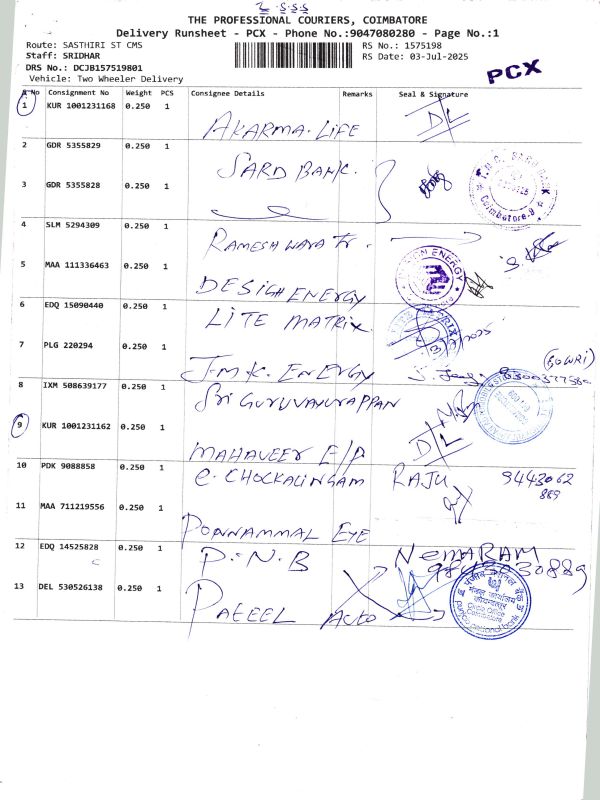 THE PROFESSIONAL COURIERS, COIMBATORE
Delivery Runsheet - PCX - Phone No.:9047080280 - Page No.:1
Route: SASTHIRI ST CMS
RS No.: 1575198
Staff: SRIDHAR
RS Date: 03-Jul-2025
DRS No.: DCJB157519801
Vehicle: Two Wheeler Delivery
PCX
S No Consignment No Weight PCS Consignee Details Remarks Seal & Signature
1 KUR 1001231168 0.250 1 AKARMA. LIFE D/L
2 GDR 5355829 0.250 1 SARD BANK.
3 GDR 5355828 0.250 1
Coimbatore
4 SLM 5294309 0.250 1 RAMESHWARA Tr.
5 MAA 111336463 0.250 1 DESIGN ENERGY
ENERGY
6 EDQ 15090440 0.250 1 LITE MATRIX
7 PLG 220294 0.250 1 J.M.K. ENERGY
(GOWRI)
8 IXM 508639177 0.250 1 Sri GURUVAYURAPPAN
9 KUR 1001231162 0.250 1 MAHAVEER E/P D/L
10 PDK 9088858 0.250 1 C. CHOCKALINGAM RAJU 9443062
889
11 MAA 711219556 0.250 1 PONNAMMAL EYE
12 EDQ 14525828 0.250 1 P.N.B NEMARAM
13 DEL 530526138 0.250 1 PATEEL Auto
पंजाब नैशनल बैंक
मंडल कार्यालय
Circle Office
Coimbatore
punjab national bank